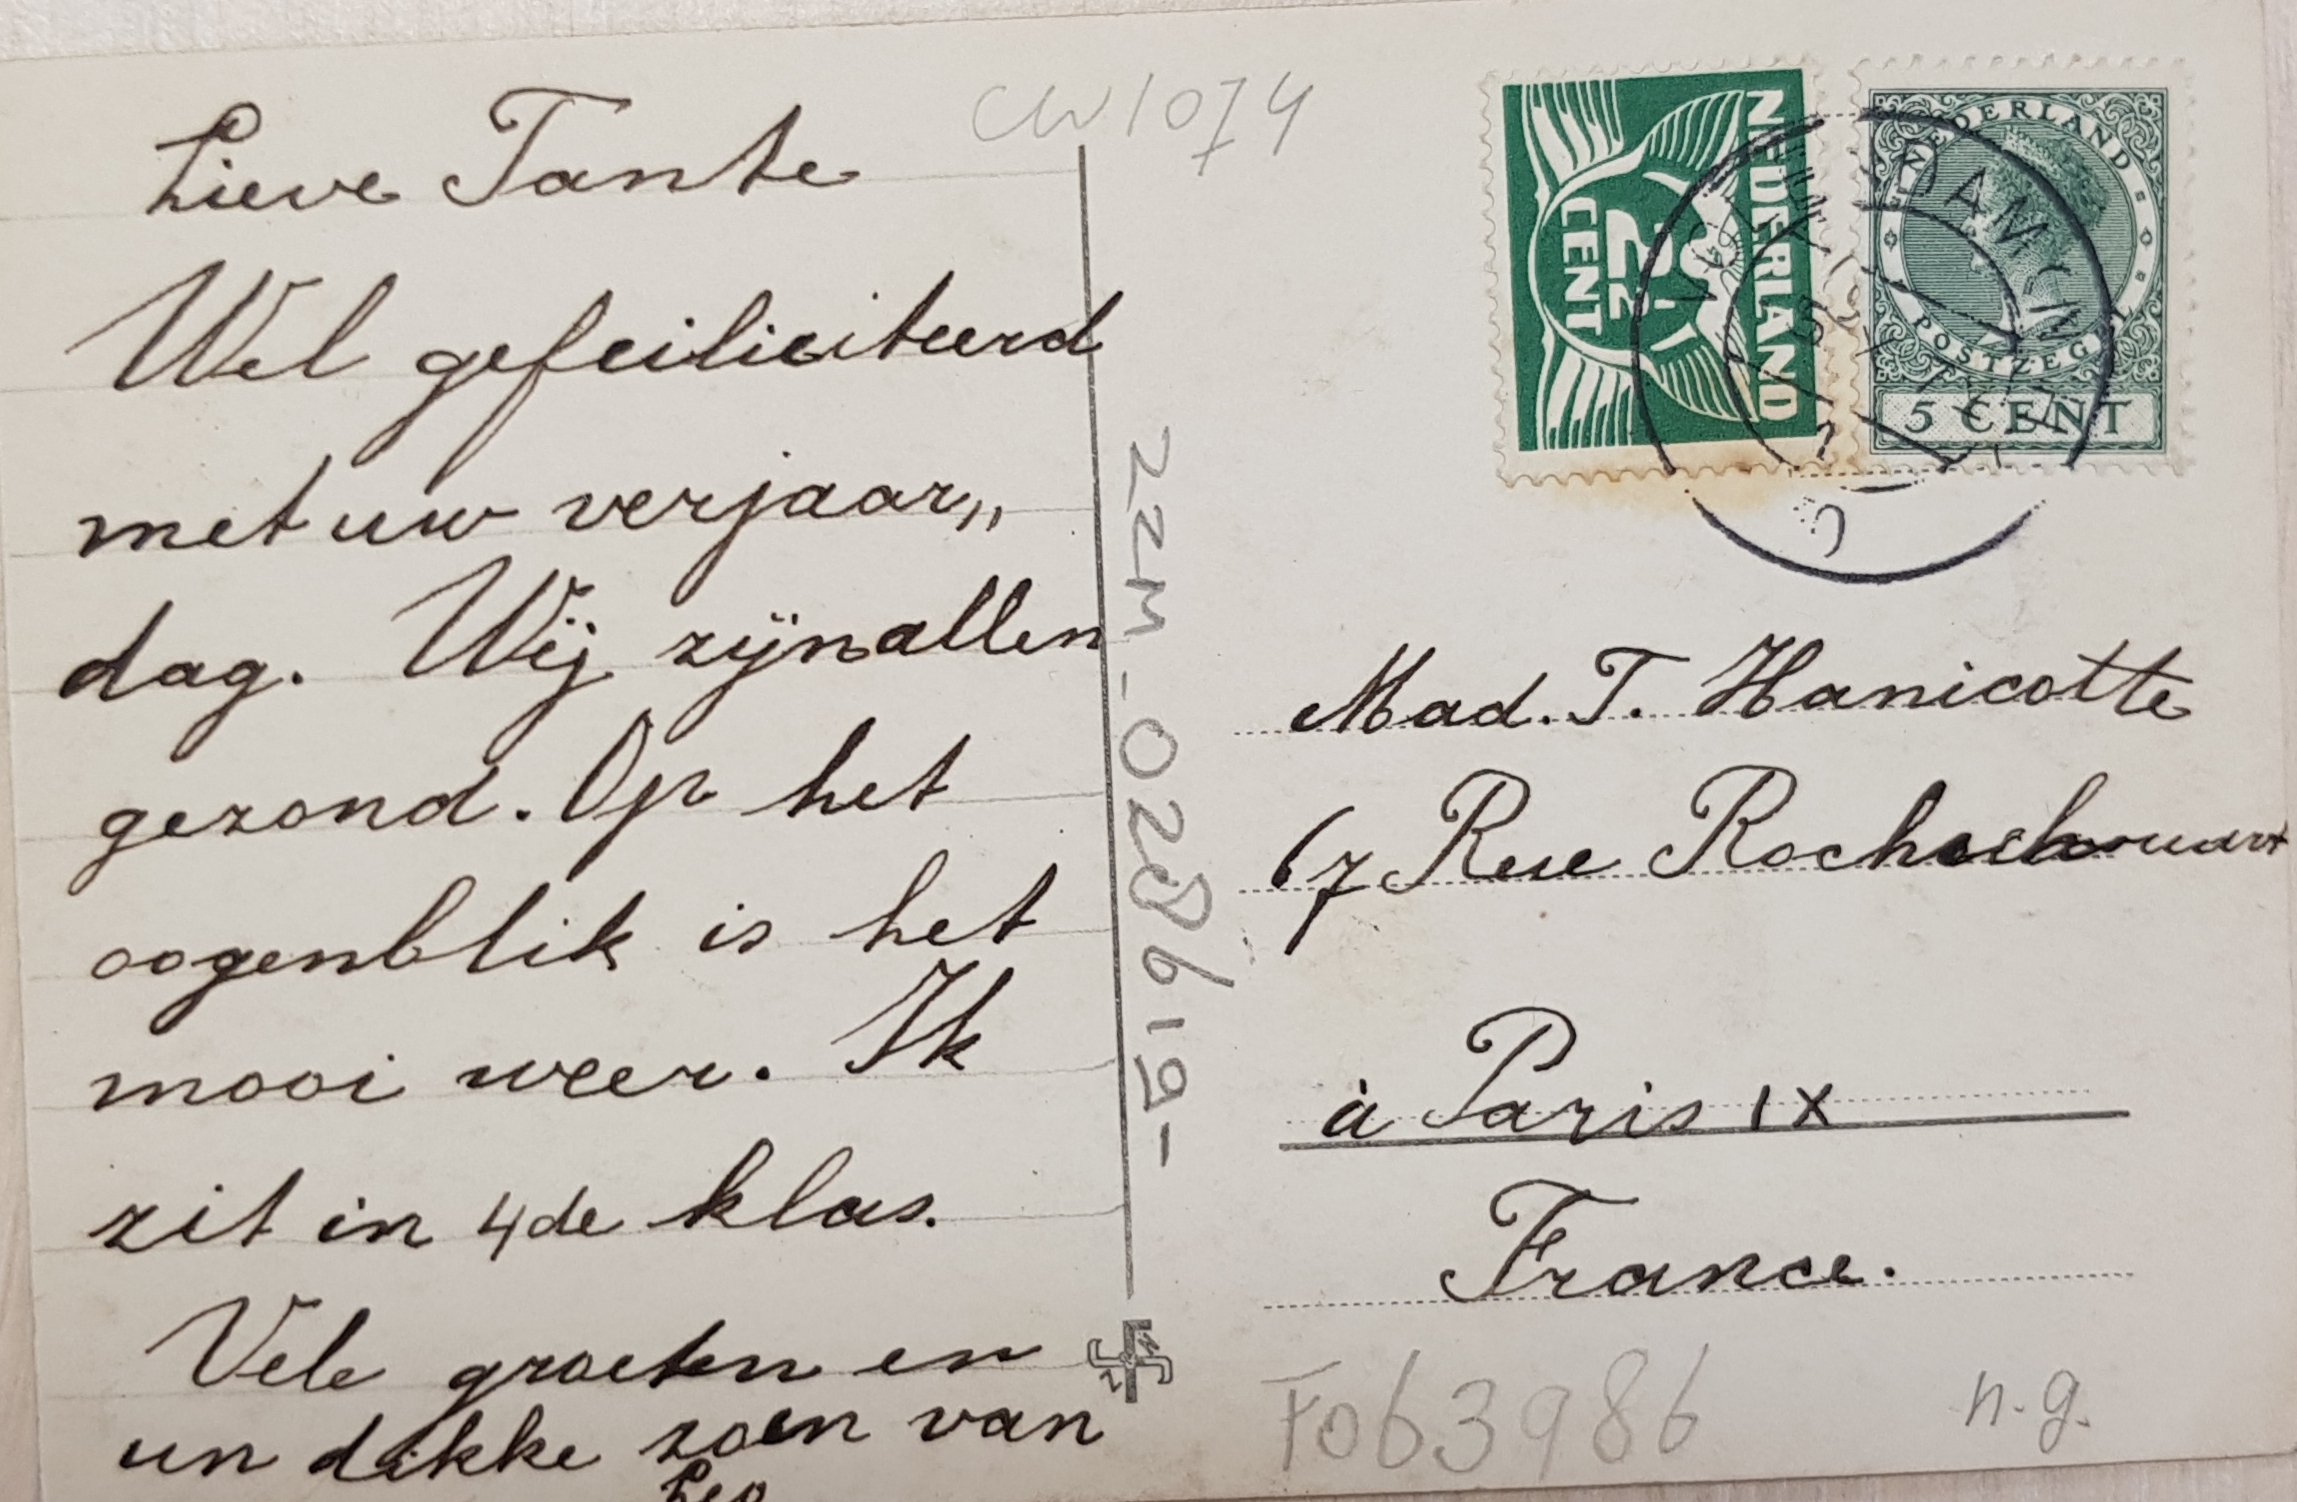 Lieve Tante
Wel gefeiliciteerd
met uw verjaar„
dag. Wij zijn allen
gezond. Op het
oogenblik is het
mooi weer. Ik
zit in 4de klas.
Vele groeten en
un dikke zoen van
Leo
CW1074
22M-028619-
NEDERLAND
2½
CENT
NEDERLAND
POSTZEGEL
5 CENT
Mad. T. Hanicotte
67 Rue Rochechouart
à Paris IX
France.
F063986
n.g.